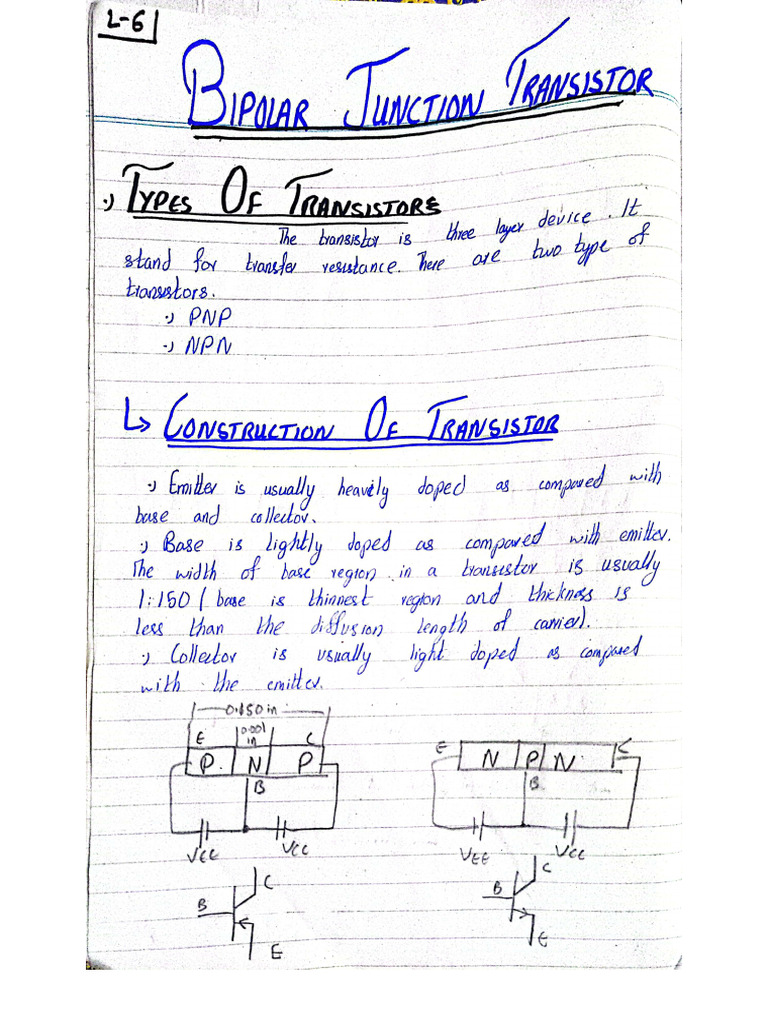 L-6
BIPOLAR JUNCTION TRANSISTOR
•) TYPES OF TRANSISTORS
The transistor is three layer device. It
stand for transfer resistance. There are two type of
transistors.
•) PNP
•) NPN
↳ CONSTRUCTION OF TRANSISTOR
•) Emitter is usually heavily doped as compared with
base and collector.
•) Base is lightly doped as compared with emitter.
The width of base region in a transistor is usually
1:150 ( base is thinnest region and thickness is
less than the diffusion length of carrier).
•) Collector is usually light doped as compared
with the emitter.
0.150 in
E 0.001 in C
P. N P
B
VEE VCC
C
B
E
E C
N P N
B
VEE VCC
C
B
E